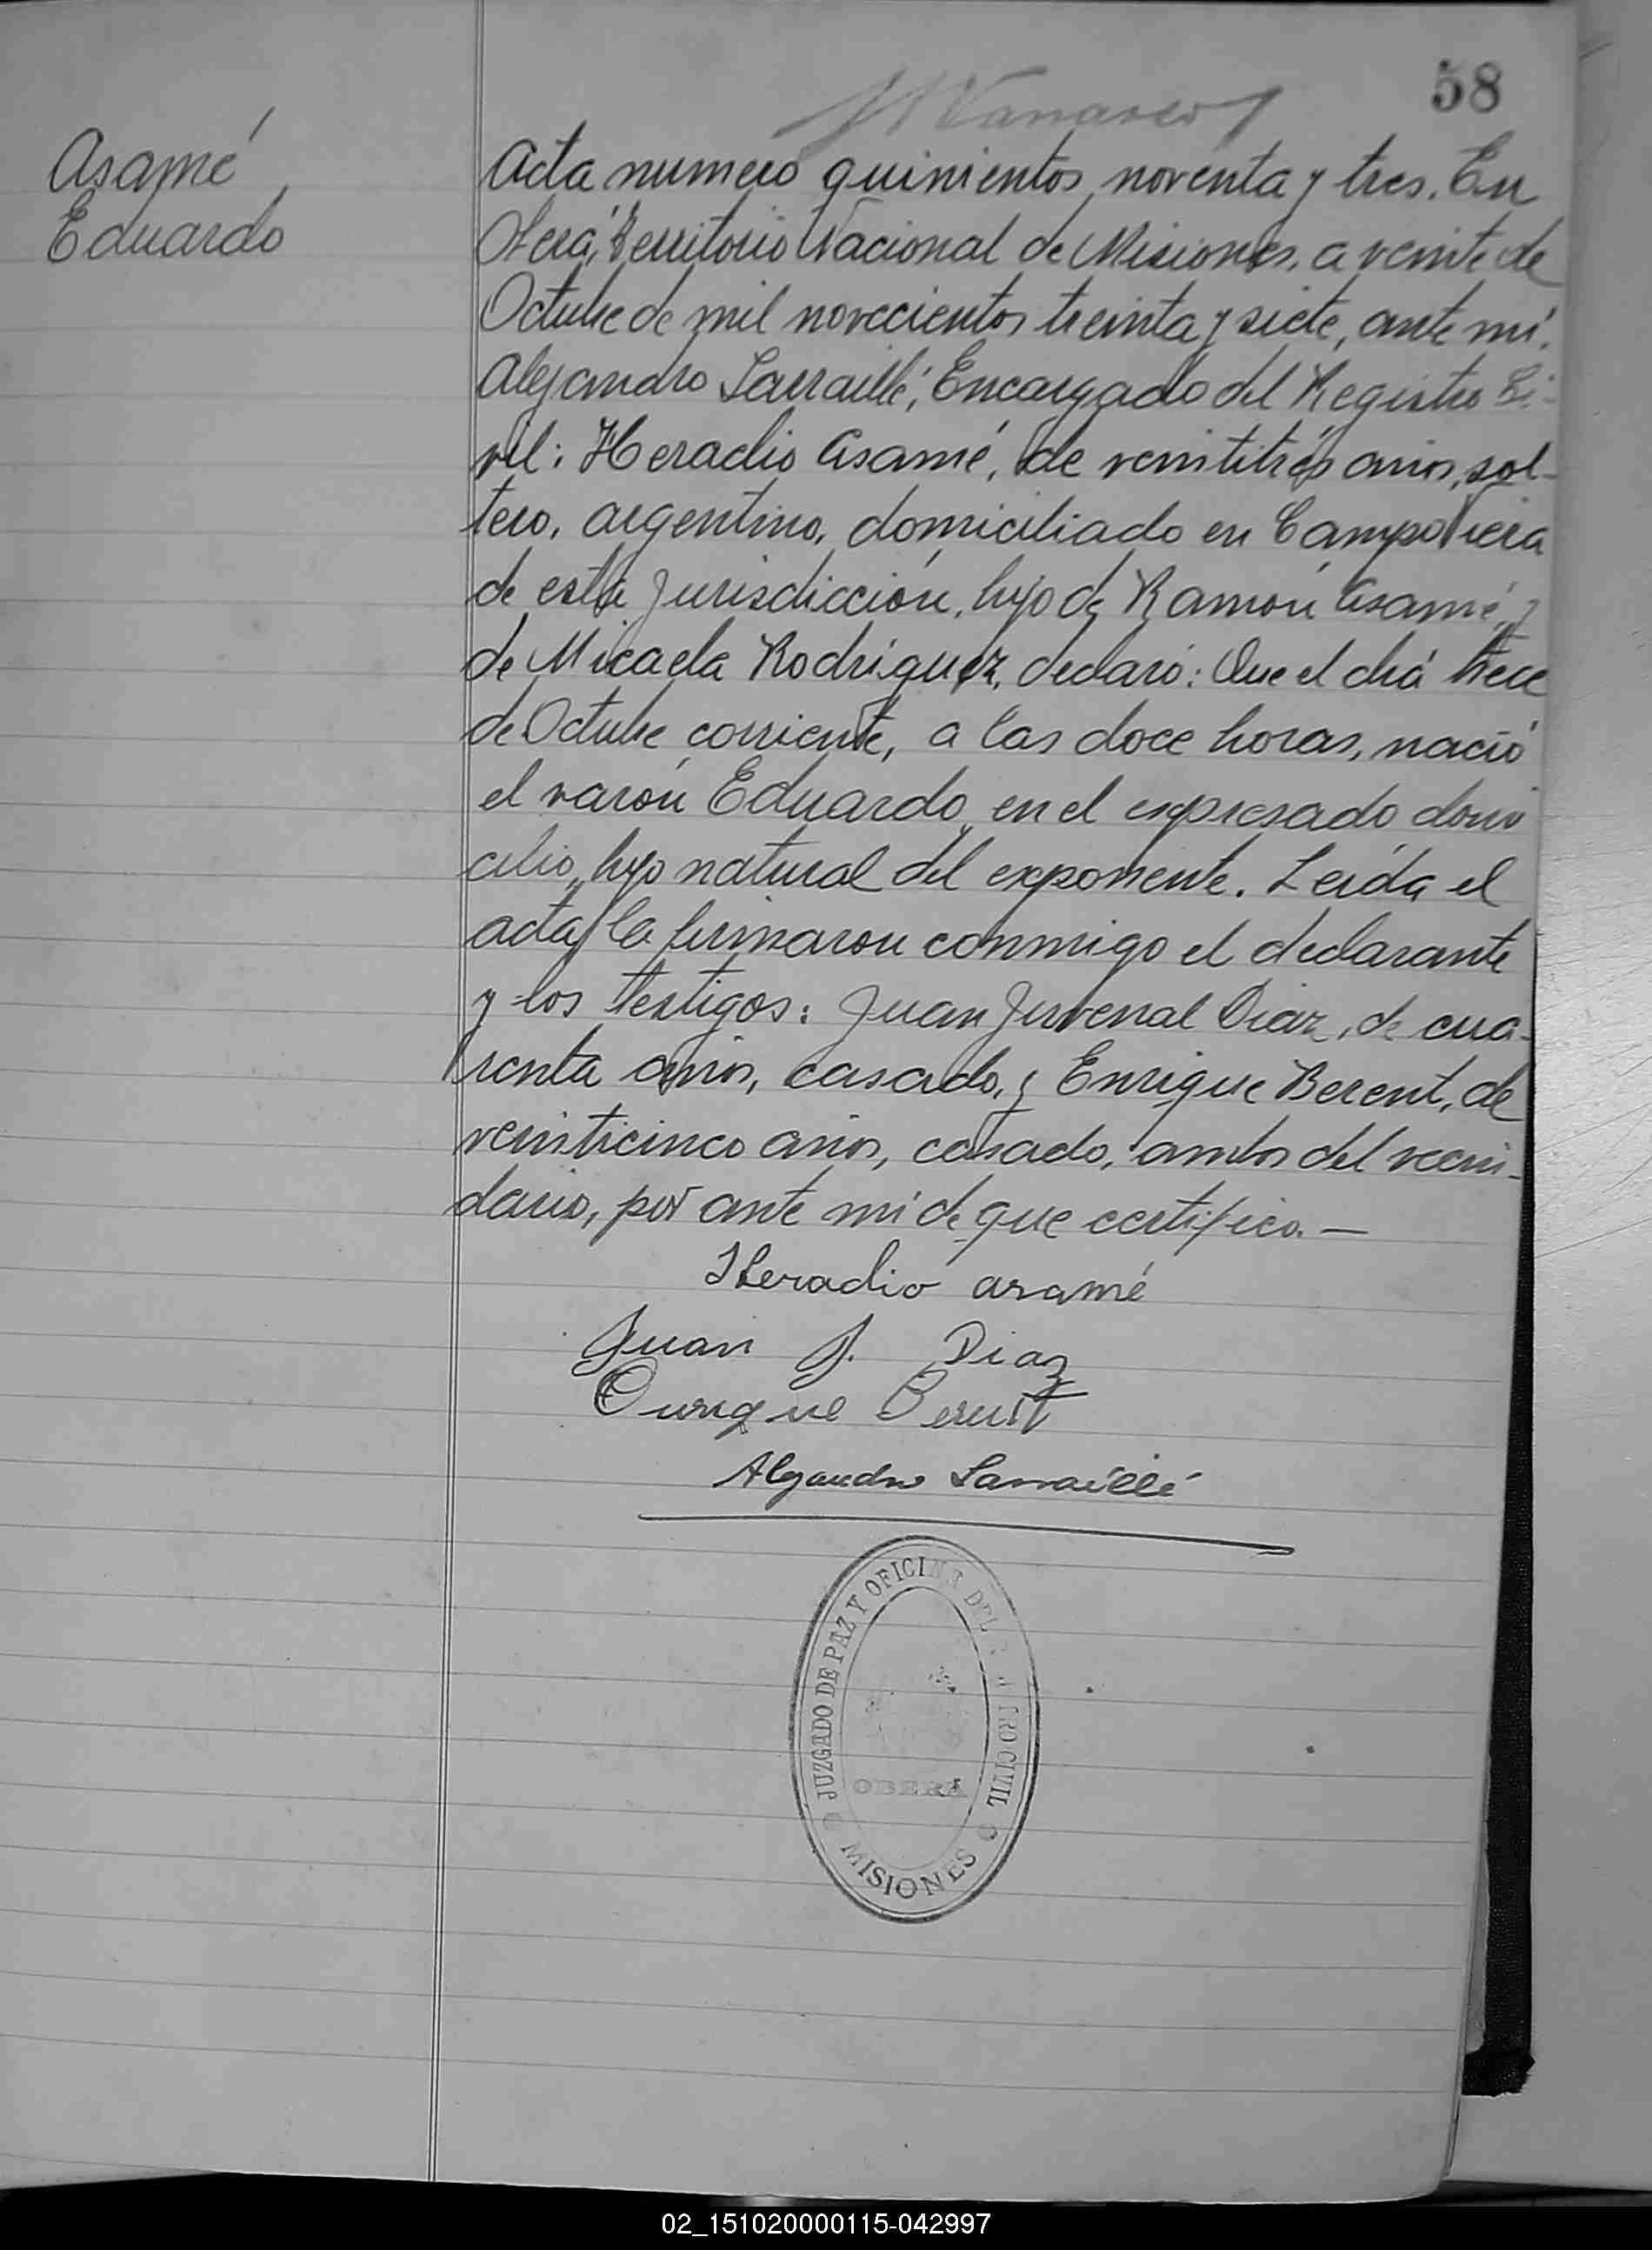 58
Asamé
Eduardo
Acta numero quinientos noventa y tres. En
Oberá, Territorio Nacional de Misiones, a veinte de
Octubre de mil novecientos treinta y siete, ante mí,
Alejandro Sarraillé, Encargado del Registro Ci-
vil: Heradio Asamé, de veintitrés años, sol-
tero, argentino, domiciliado en Campo Viera
de esta jurisdicción, hijo de Ramón Asamé, y
de Micaela Rodriguez, declaró: Que el día trece
de Octubre corriente, a las doce horas, nació
el varón Eduardo, en el expresado domi
cilio, hijo natural del exponente. Leída el
acta, la firmaron conmmigo el declarante
y los testigos: Juan Juvenal Diaz, de cua-
renta años, casado, y Enrique Berent, de
veinticinco años, casado, ambos del vecin-
dario, por ante mí de que certifico. —
Heradio asamé
Juan J. Diaz
Enrique Berent
Alejandro Sarraillé
JUZGADO DE PAZ Y OFICINA DEL REGISTRO CIVIL
OBERÁ
MISIONES
02_151020000115-042997